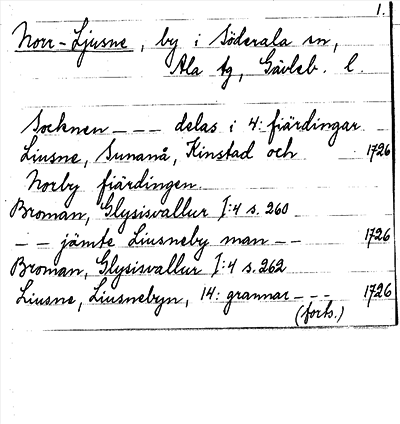 1.
Norr-Ljusne, by i Söderala sn,
Ala tg, Gävleb. l.
Socknen --- delas i 4: fiärdingar
Liusne, Sunanå, Kinstad och 1726
Norby fiärdingen.
Broman, Glysisvallur I:4 s. 260
-- jämte Liusneby man -- 1726
Broman, Glysisvallur I:4 s. 262
Liusne, Liusnebyn, 14: grannar --- 1726
(forts.)